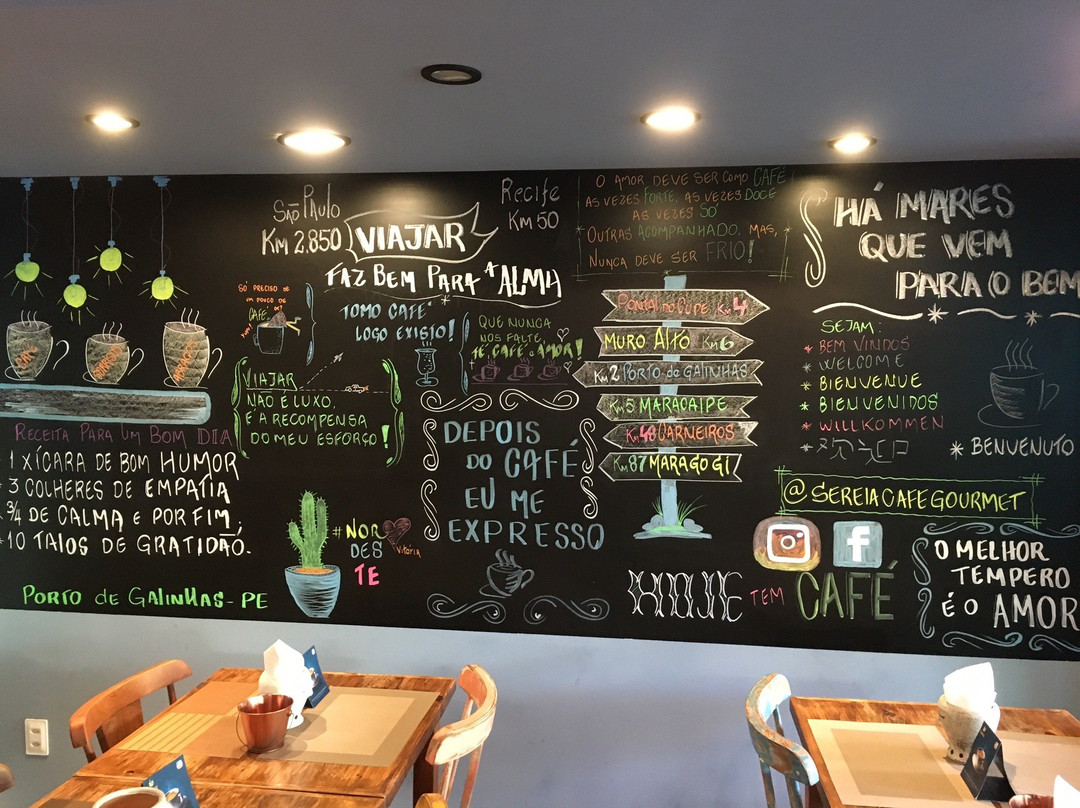 São Paulo
Km 2.850
VIAJAR
Recife
Km 50
FAZ BEM PARA A ALMA
O AMOR DEVE SER COMO CAFÉ
AS VEZES FORTE, AS VEZES DOCE
AS VEZES SÓ
OUTRAS ACOMPANHADO. MAS,
NUNCA DEVE SER FRIO!
HÁ MARES
QUE VEM
PARA O BEM
SÓ PRECISO DE
UM POUCO DE
CAFÉ
TOMO CAFÉ
LOGO EXISTO!
QUE NUNCA
NOS FALTE,
FÉ, CAFÉ e AMOR!
VIAJAR
NÃO É LUXO,
É A RECOMPENSA
DO MEU ESFORÇO!
RECEITA PARA UM BOM DIA
1 XÍCARA DE BOM HUMOR
3 COLHERES DE EMPATIA
3/4 DE CALMA E POR FIM,
10 TAIOS DE GRATIDÃO.
PORTO DE GALINHAS - PE
#NOR
DES
TE
Vitória
DEPOIS
DO CAFÉ
EU ME
EXPRESSO
PONTAL DO CUPE Km 4
MURO ALTO Km 6
Km 2 PORTO DE GALINHAS
Km 5 MARACAIPE
Km 48 CARNEIROS
Km 87 MARAGOGI
SEJAM:
* BEM VINDOS
* WELCOME
* BIENVENUE
* BIENVENIDOS
* WILLKOMMEN
* BENVENUTO
@SEREIACAFEGOURMET
f
HOJE TEM CAFÉ
O MELHOR
TEMPERO
É O AMOR